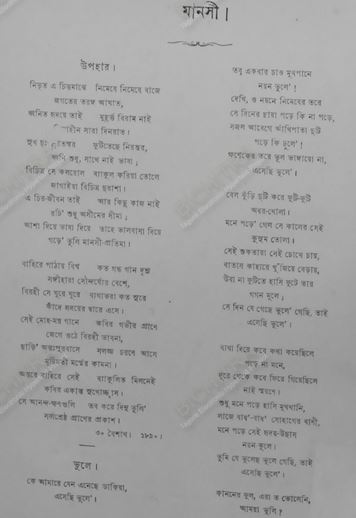 মানসী।
উপহার।
নিভৃত এ চিত্তমাঝে নিমেষে নিমেষে বাজে
জগতের তরঙ্গ আঘাত,
ধ্বনিত হৃদয়ে তাই মুহূর্ত্ত বিরাম নাই
নিদ্রাহীন সারা দিনরাত।
সুখ দুঃখ গীতস্বর ফুটিতেছে নিরন্তর,
ধ্বনি শুধু, সাথে নাই ভাষা;
বিচিত্র সে কলরোলে ব্যাকুল করিয়া তোলে
জাগাইয়া বিচিত্র দুরাশা।
এ চির-জীবন তাই আর কিছু কাজ নাই
রচি' শুধু অসীমের সীমা;
আশা দিয়ে ভাষা দিয়ে তাহে ভালবাসা দিয়ে
গড়ে' তুলি মানসী-প্রতিমা।
বাহিরে পাঠায় বিশ্ব কত গন্ধ গান দৃশ্য
সঙ্গীহারা সৌন্দর্য্যের বেশে,
বিরহী সে ঘুরে ঘুরে ব্যথাভরা কত সুরে
কাঁদে হৃদয়ের দ্বারে এসে।
সেই মোহ-মন্ত্র গানে কবির গভীর প্রাণে
জেগে ওঠে বিরহী ভাবনা,
ছাড়ি' অন্তঃপুরবাসে সলজ্জ চরণে আসে
মূর্ত্তিমতী মর্ম্মের কামনা।
অন্তরে বাহিরে সেই ব্যাকুলিত মিলনেই
কবির একান্ত সুখোচ্ছ্বাস।
সে আনন্দ-ক্ষণগুলি তব করে দিনু তুলি'
সর্ব্বশ্রেষ্ঠ প্রাণের প্রকাশ।
৩০ বৈশাখ। ১৮৯০।
ভুলে।
কে আমারে যেন এনেছে ডাকিয়া,
এসেছি ভুলে'।
তবু একবার চাও মুখপানে
নয়ন তুলে'।
দেখি, ও নয়নে নিমেষের তরে
সে দিনের ছায়া পড়ে কি না পড়ে,
সজল আবেগে আঁখিপাতা দুটি
পড়ে কি ঢুলে'।
ক্ষণেকের তরে ভুল ভাঙায়ো না,
এসেছি ভুলে'।
বেল কুঁড়ি দুটি করে ফুটি-ফুটি
অধর-খোলা।
মনে পড়ে' গেল সে কালের সেই
কুসুম তোলা।
সেই শুকতারা সেই চোখে চায়,
বাতাস কাহারে খুঁজিয়ে বেড়ায়,
উষা না ফুটিতে হাসি ফুটে তার
গগন মূলে;
সে দিন যে গেছে ভুলে' গেছি, তাই
এসেছি ভুলে'।
ব্যথা দিয়ে কবে কথা কয়েছিলে
পড়ে না মনে,
দূরে থেকে কবে ফিরে গিয়েছিলে
নাই স্মরণে।
শুধু মনে পড়ে হাসি মুখখানি,
লাজে বাধ'-বাধ' সোহাগের বাণী,
মনে পড়ে সেই হৃদয়-উছাস
নয়ন-কূলে।
তুমি যে ভুলেছ ভুলে গেছি, তাই
এসেছি ভুলে'।
কাননের ফুল, এরা ত ভোলেনি,
আমরা ভুলি?